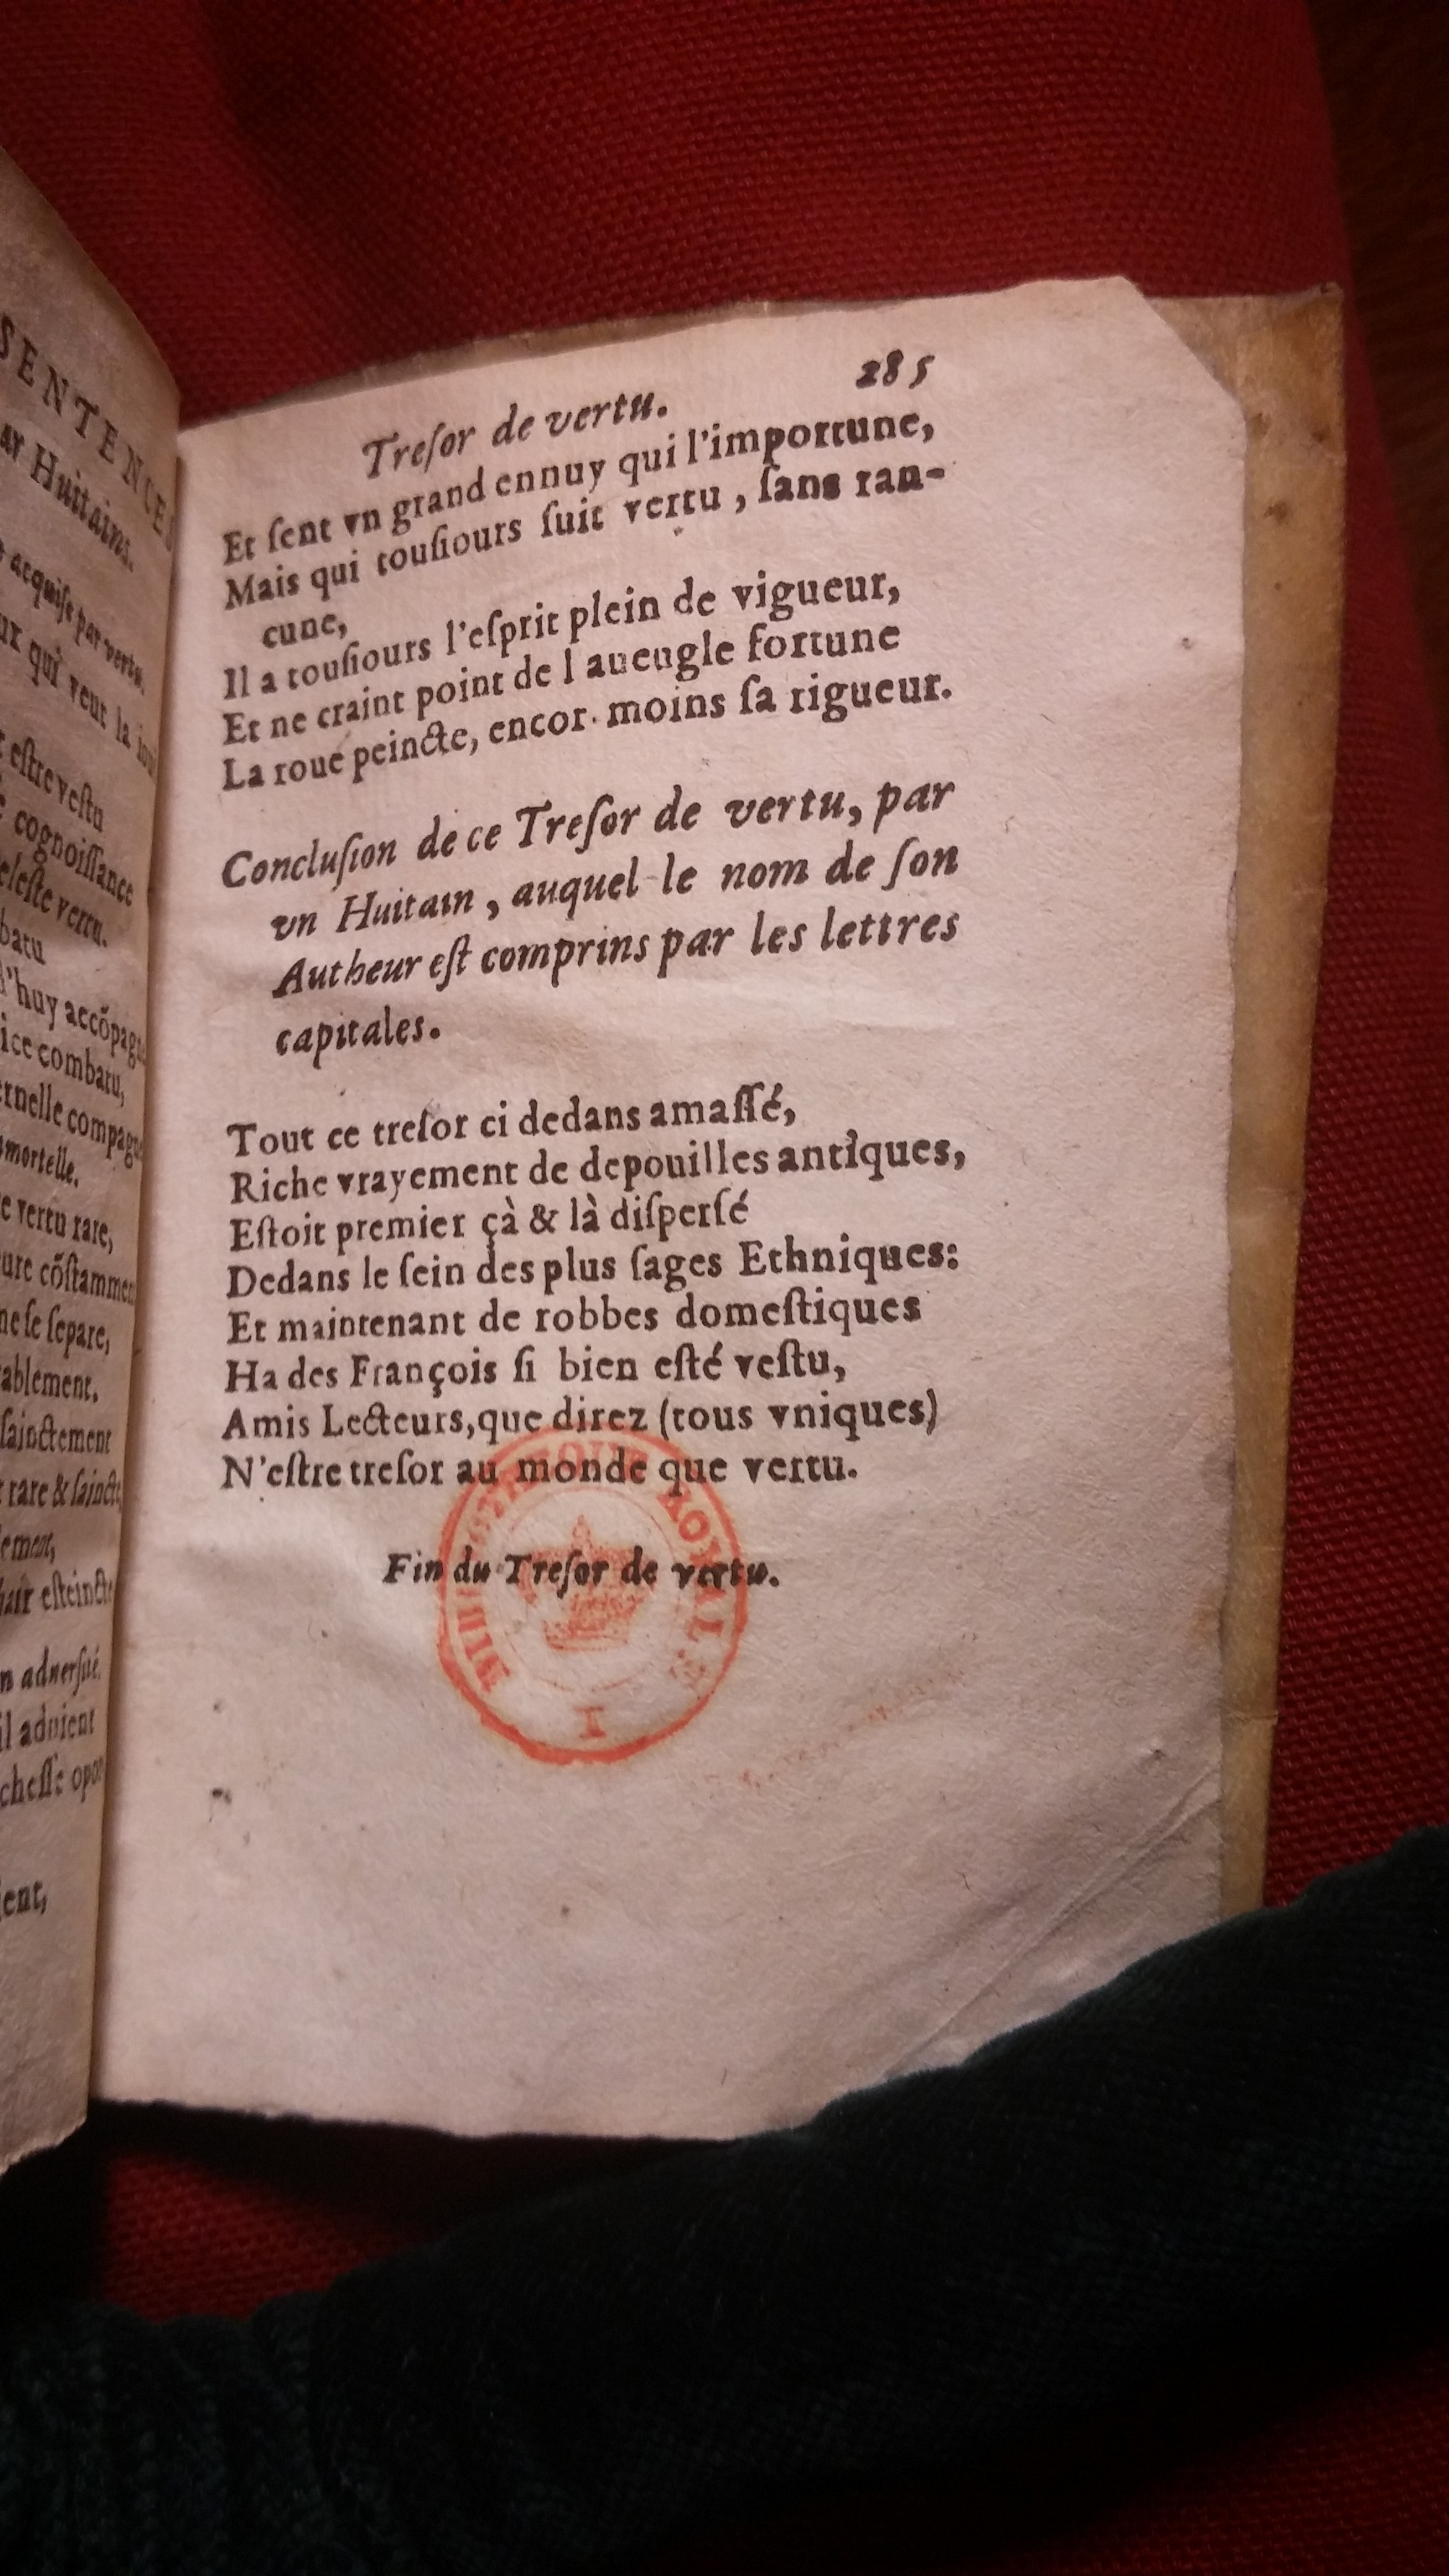 SENTENCES
ar Huitains.
acquise par vertu.
ux qui veut la
estre vestu
cognoissance
celeste vertu.
batu
d'huy accõpag
ice combatu,
ernelle compag
mortelle.
e vertu rare,
ure cõstammen
ne se separe,
ablement.
sainctement
rare & saincte
ement,
hair esteincte
n aduersité.
il aduient
chesse opo
ent,
Treſor de vertu. 285
Et ſent vn grand ennuy qui l'importune,
Mais qui touſiours ſuit vertu, ſans ran-
cune,
Il a touſiours l'eſprit plein de vigueur,
Et ne craint point de l aueugle fortune
La roue peincte, encor moins ſa rigueur.
Concluſion de ce Treſor de vertu, par
vn Huitain, auquel le nom de ſon
Autheur eſt comprins par les lettres
capitales.
Tout ce treſor ci dedans amaſſé,
Riche vrayement de depouilles antiques,
Eſtoit premier çà & là diſperſé
Dedans le ſein des plus ſages Ethniques:
Et maintenant de robbes domeſtiques
Ha des François ſi bien eſté veſtu,
Amis Lecteurs, que direz (tous vniques)
N'eſtre treſor au monde que vertu.
Fin du Treſor de vertu.
BIBLIOTHEQUE ROYALE
I